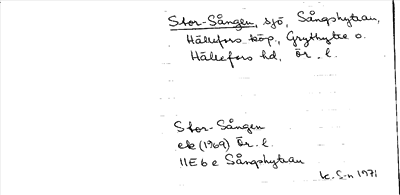 Stor-Sången, sjö, Sångshyttan,
Hällefors köp., Grythytte o.
Hällefors hd, Ör. l.
Stor-Sången
ek (1969) Ör. l.
11E 6 e Sångshyttan
K. S-n 1971